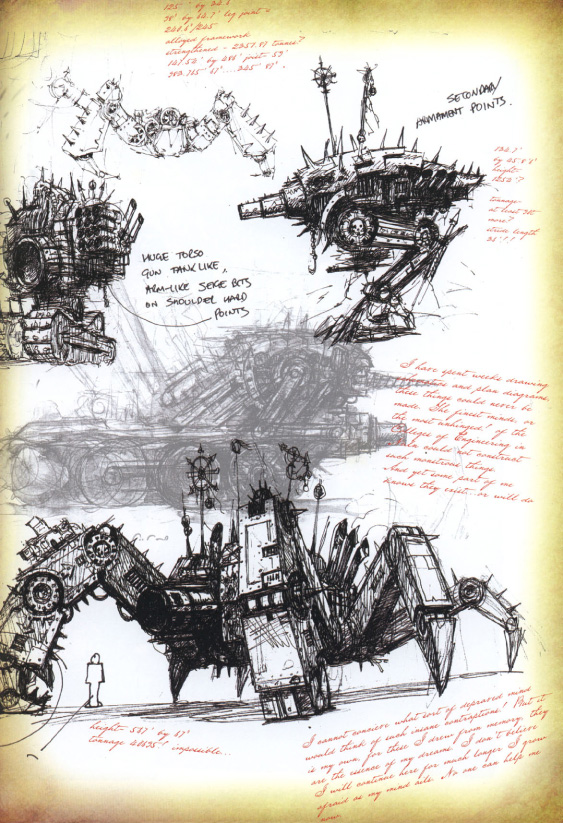 125' by 32.1
38' by 42.7' leg joint =
228.6'/245'
alloyed framework
strengthened - 2357.87 tonnes?
147.52' by 286' joist- 53'
382.765' 67'....245' 87'.
SECONDARY
ARMAMENT POINTS.
132.7'
by 25.8'8'
height-
1252'?
tonnage
at least 312
more?
stride length
38'!!
HUGE TORSO
GUN TANK LIKE,
ARM-LIKE SEIGE BITS
ON SHOULDER HARD
POINTS
I have spent weeks drawing
and plan diagrams,
these things could never be
made. The finest minds, or
the most unhinged! of the
College of Engineering in
could not construct
such monstrous things.
And yet some part of me
knows they exist...or will do
height- 537' by 67'
tonnage 48635! impossible...
I cannot conceive what sort of depraved mind
would think of such insane contraptions! That it
is my own, for these I drew from memory. they
are the essence of my dreams. I don't believe
I will continue here for much longer. I grow
afraid as my mind ails. No one can help me
now.